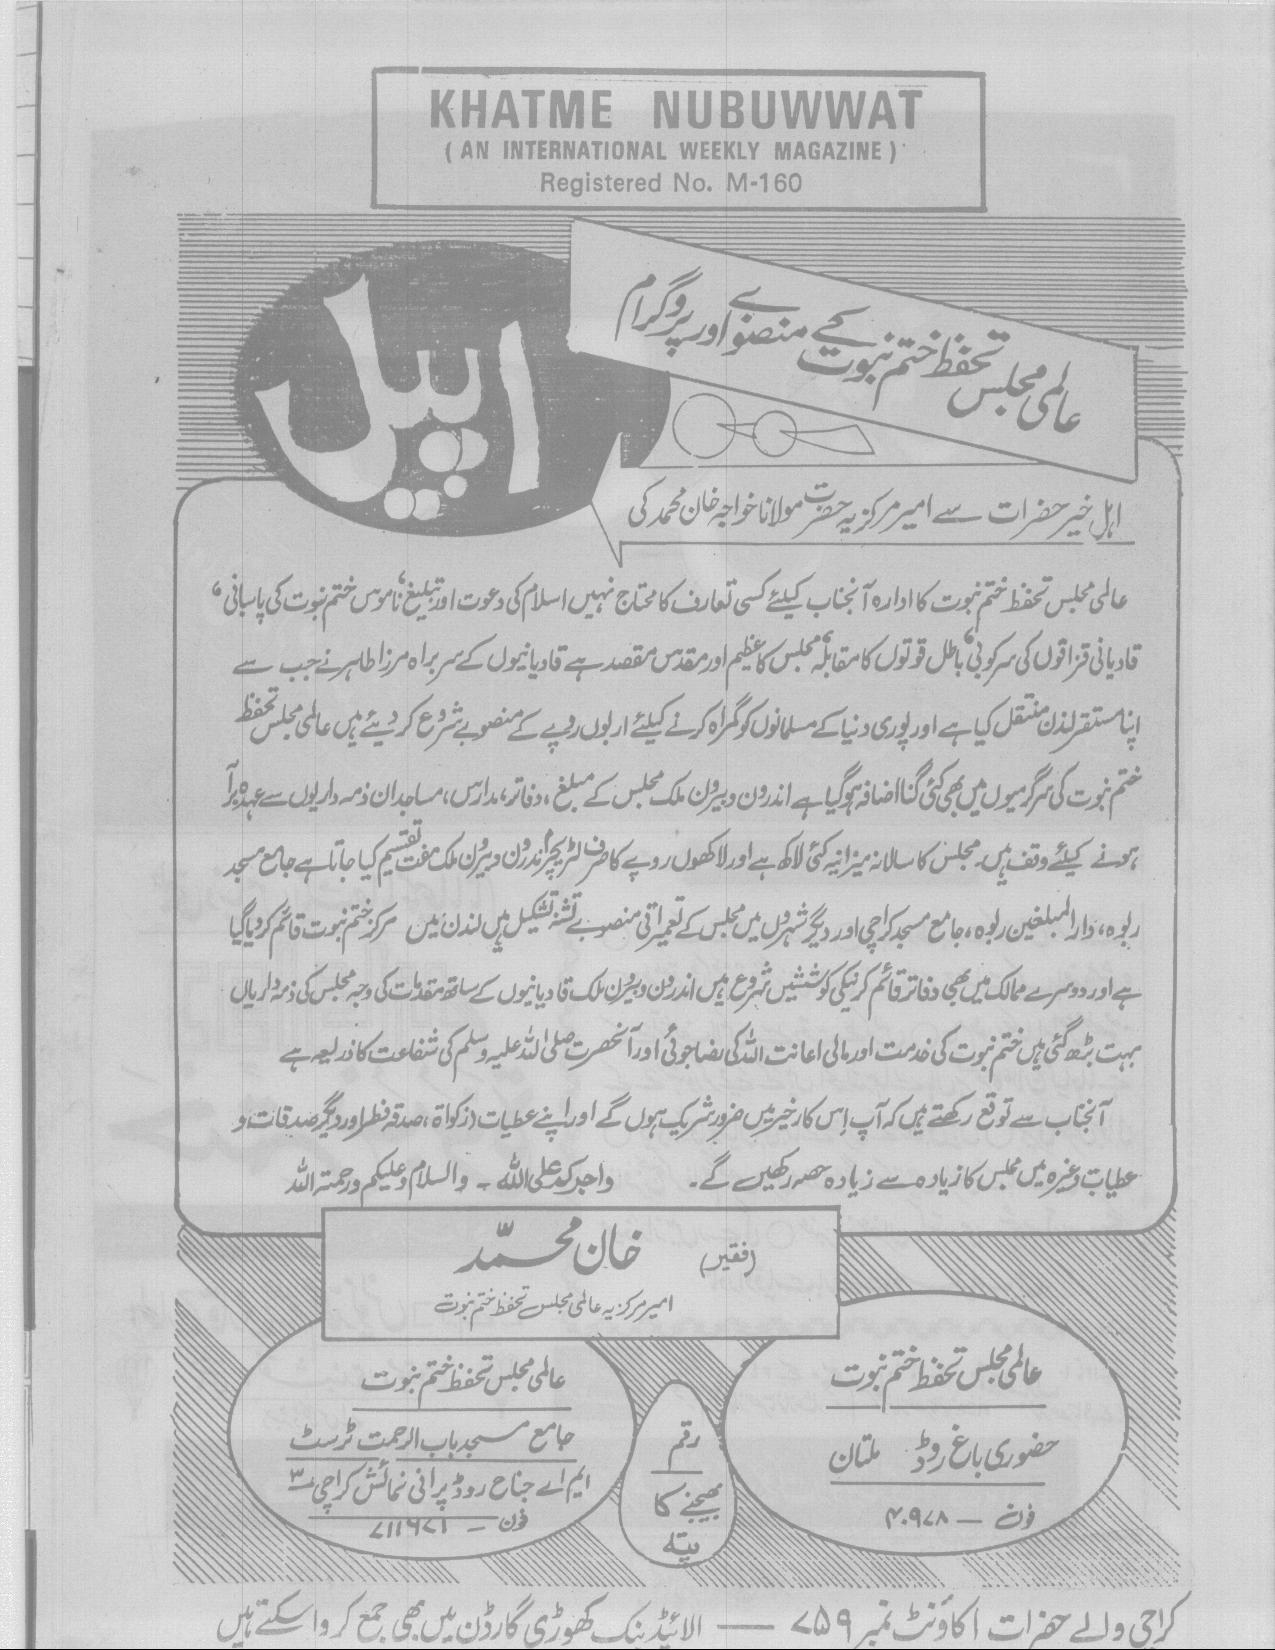 KHATME NUBUWWAT
( AN INTERNATIONAL WEEKLY MAGAZINE )
Registered No. M-160
عالمی مجلس تحفظ ختم نبوت کے منصوبے اور پروگرام
اپیل
اہل خیر حضرات سے امیر مرکزیہ حضرت مولانا خواجہ خان محمد کی
عالمی مجلس تحفظ ختم نبوت کا ادارہ آنجناب کیلئے کسی تعارف کا محتاج نہیں اسلام کی دعوت اور تبلیغ، ناموس ختم نبوت کی پاسبانی،
قادیانی قزاقوں کی سرکوبی، باطل قوتوں کا مقابلہ، مجلس کا عظیم اور مقدس مقصد ہے قادیانیوں کے سربراہ مرزا طاہر نے جب سے
اپنا مستقر لندن منتقل کیا ہے اور پوری دنیا کے مسلمانوں کو گمراہ کرنے کیلئے اربوں روپے کے منصوبے شروع کر دیئے ہیں عالمی مجلس تحفظ
ختم نبوت کی سرگرمیوں میں بھی کئی گنا اضافہ ہو گیا ہے اندرون و بیرون ملک مجلس کے مبلغ، دفاتر، مدارس، مساجد ان ذمہ داریوں سے عہدہ برآ
ہونے کیلئے وقف ہیں۔ مجلس کا سالانہ میزانیہ کئی لاکھ ہے اور لاکھوں روپے کا صرف لٹریچر اندرون و بیرون ملک مفت تقسیم کیا جاتا ہے جامع مسجد
ربوہ، دارالمبلغین ربوہ، جامع مسجد کراچی اور دیگر شہروں میں مجلس کے تعمیراتی منصوبے تشنہ تشکیل ہیں لندن میں مرکز ختم نبوت قائم کر دیا گیا
ہے اور دوسرے ممالک میں بھی دفاتر قائم کرنیکی کوششیں شروع ہیں اندرون و بیرون ملک قادیانیوں کے ساتھ مقدمات کی وجہ مجلس کی ذمہ داریاں
بہت بڑھ گئی ہیں ختم نبوت کی خدمت اور مالی اعانت اللہ کی رضا جوئی اور آنحضرت صلی اللہ علیہ وسلم کی شفاعت کا ذریعہ ہے
آنجناب سے توقع رکھتے ہیں کہ آپ اِس کار خیر میں ضرور شریک ہوں گے اور اپنے عطیات (زکوٰۃ، صدقہ فطر اور دیگر صدقات و
عطیات وغیرہ میں مجلس کا زیادہ سے زیادہ حصہ رکھیں گے۔ واجرکم علی اللہ ۔ والسلام وعلیکم ورحمتہ اللہ
(فقیر) خان محمّد
امیر مرکزیہ عالمی مجلس تحفظ ختم نبوت
عالمی مجلس تحفظ ختم نبوت
حضوری باغ روڈ ملتان
فون — ۴۰۹۷۸
رقم
بھیجنے کا
پتہ
عالمی مجلس تحفظ ختم نبوت
جامع مسجد باب الرحمت ٹرسٹ
ایم اے جناح روڈ پرانی نمائش کراچی ۳
فون — ۷۱۱۶۷۱
کراچی والے حضرات اکاؤنٹ نمبر ۷۵۹ — الائیڈ بنک کھوڑی گارڈن میں بھی جمع کروا سکتے ہیں